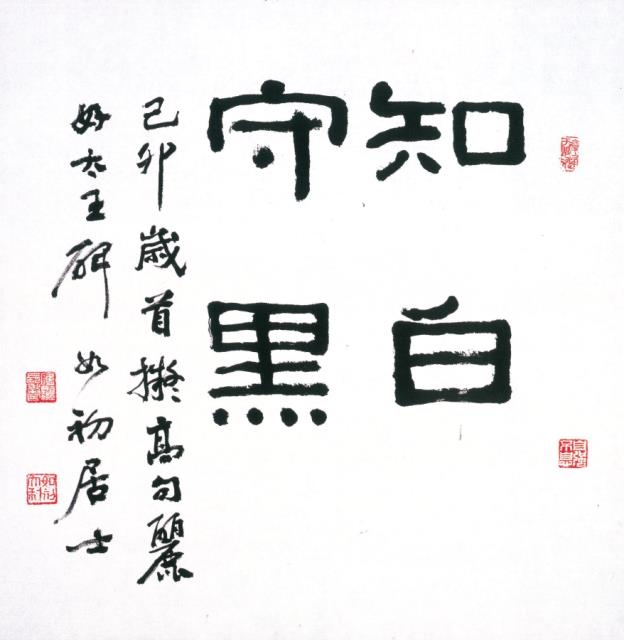 知白
守黑
己卯歲首擬高句麗
好太王碑 如初居士